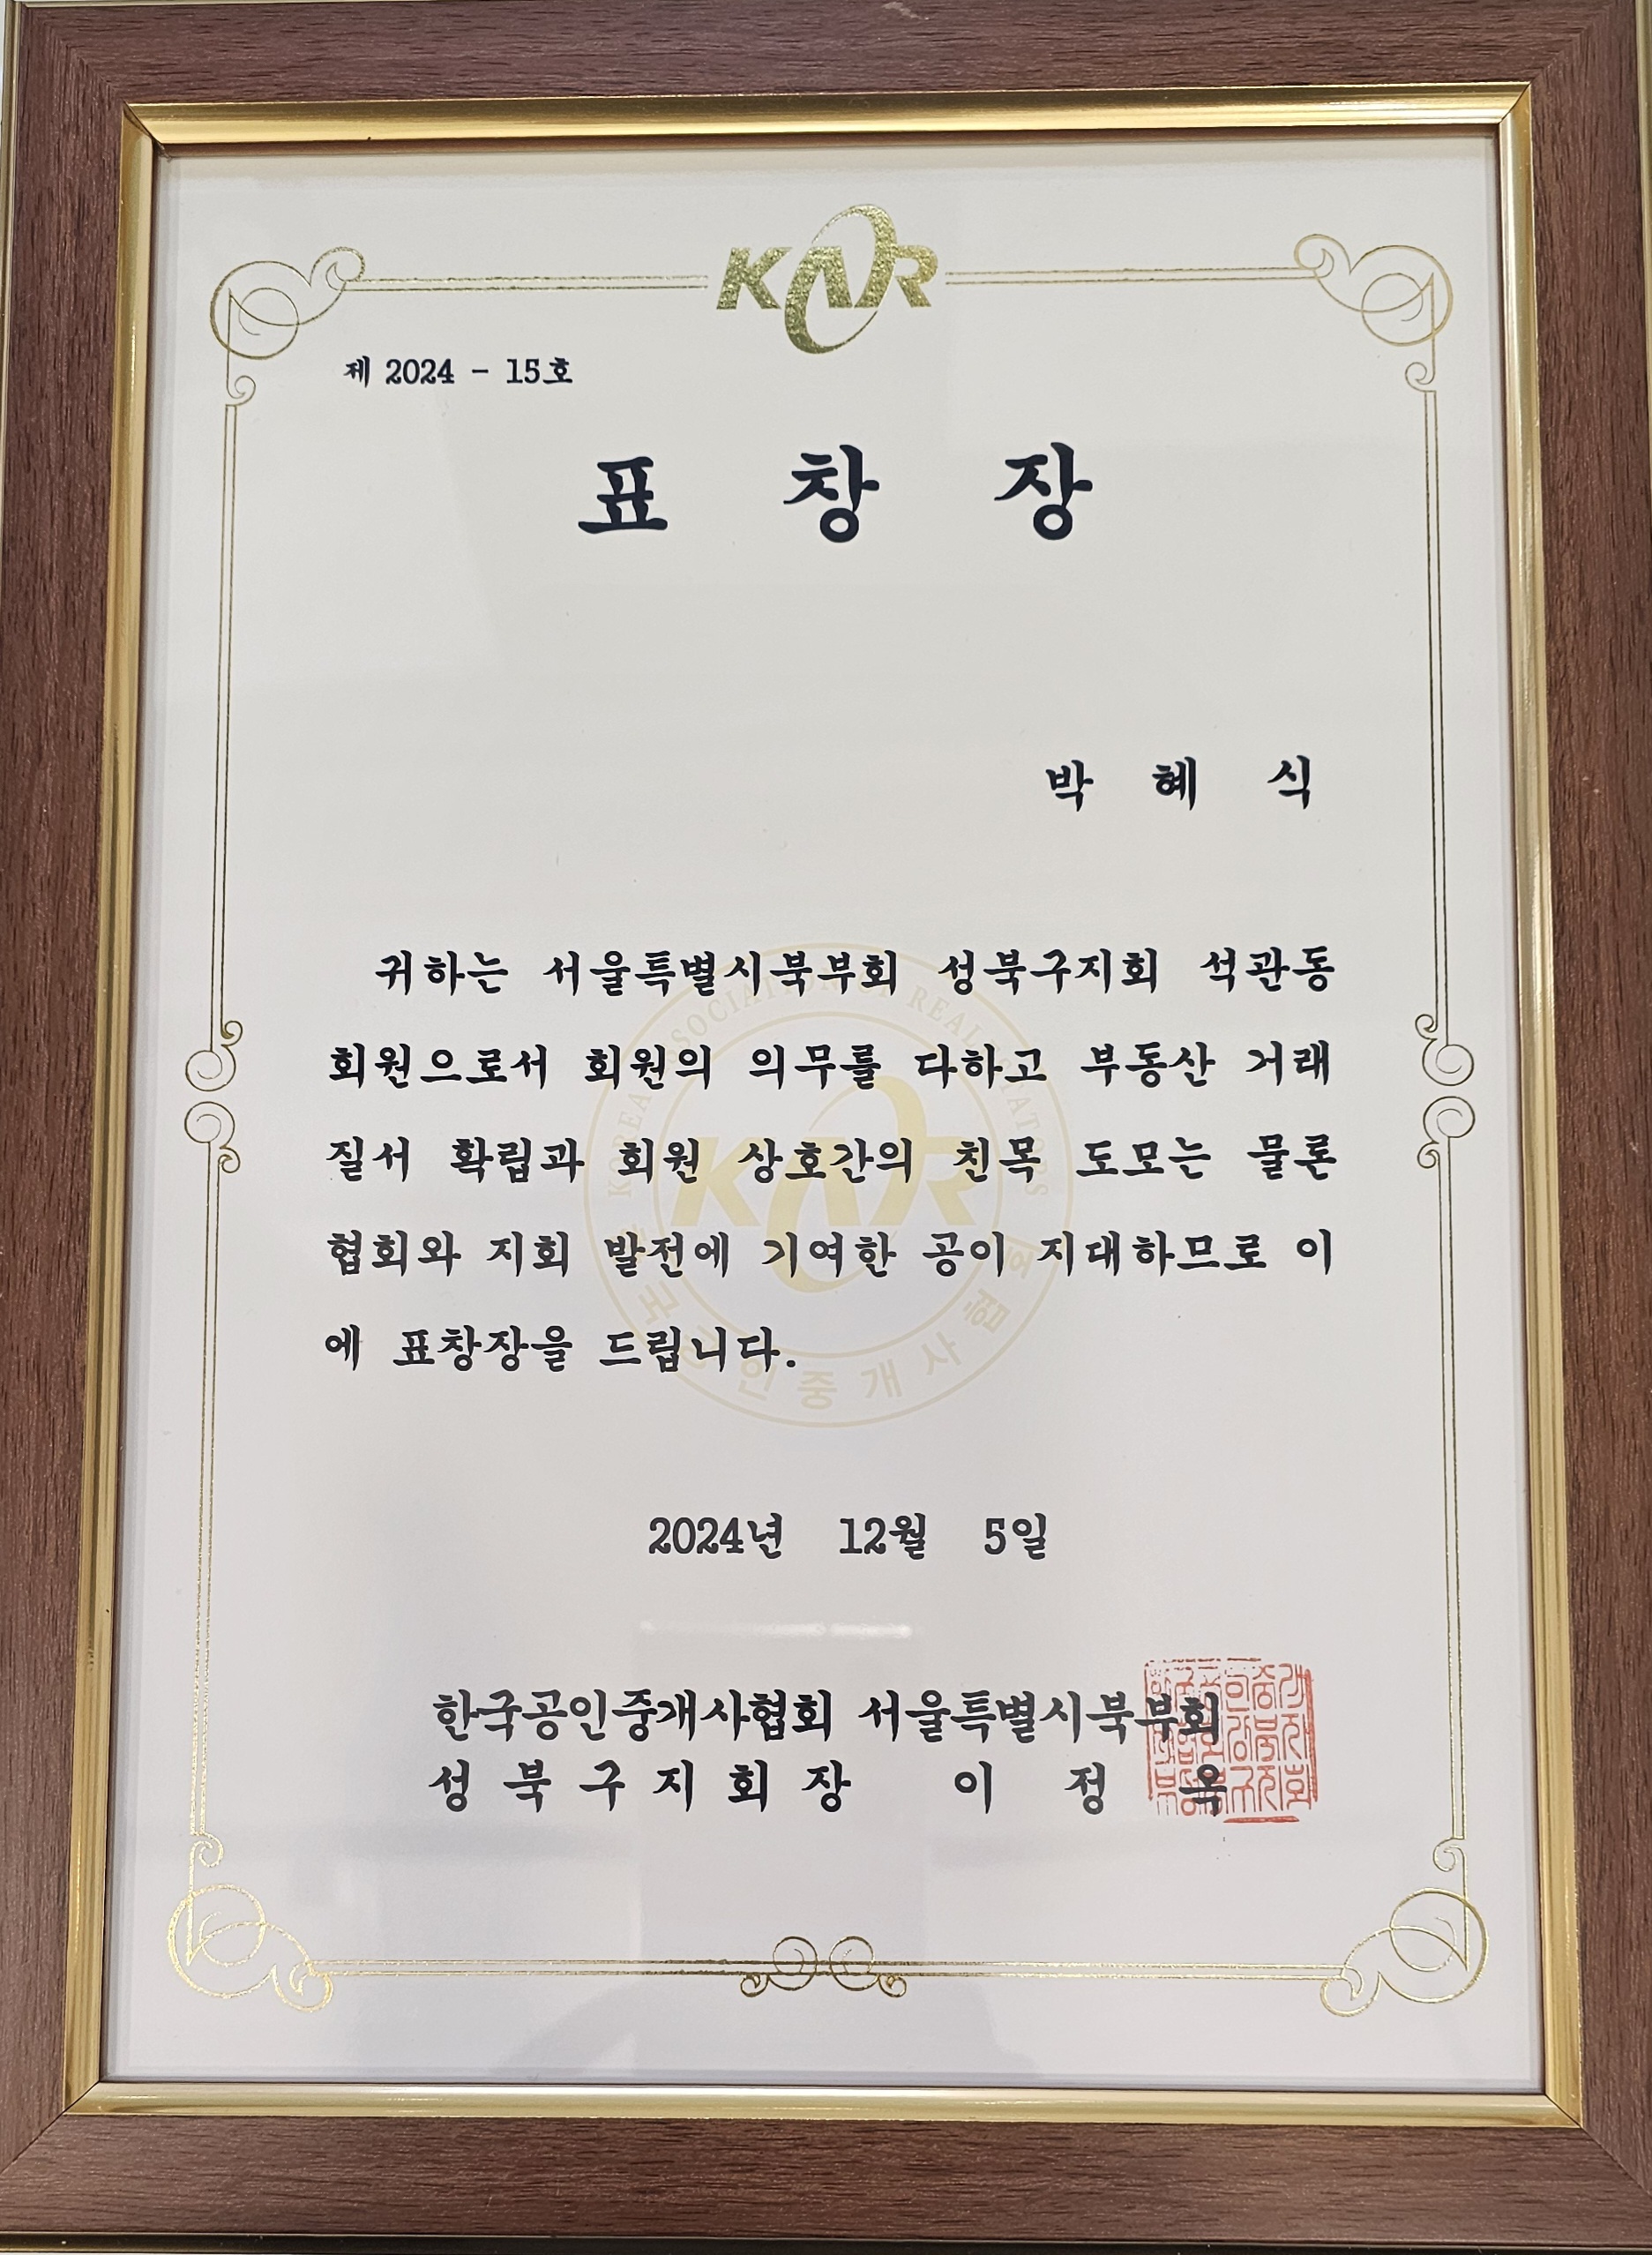 KAR
제 2024 - 15호
표 창 장
박 혜 식
귀하는 서울특별시북부회 성북구지회 석관동
회원으로서 회원의 의무를 다하고 부동산 거래
질서 확립과 회원 상호간의 친목 도모는 물론
협회와 지회 발전에 기여한 공이 지대하므로 이
에 표창장을 드립니다.
2024년 12월 5일
한국공인중개사협회 서울특별시북부회
성 북 구 지 회 장 이 정 옥